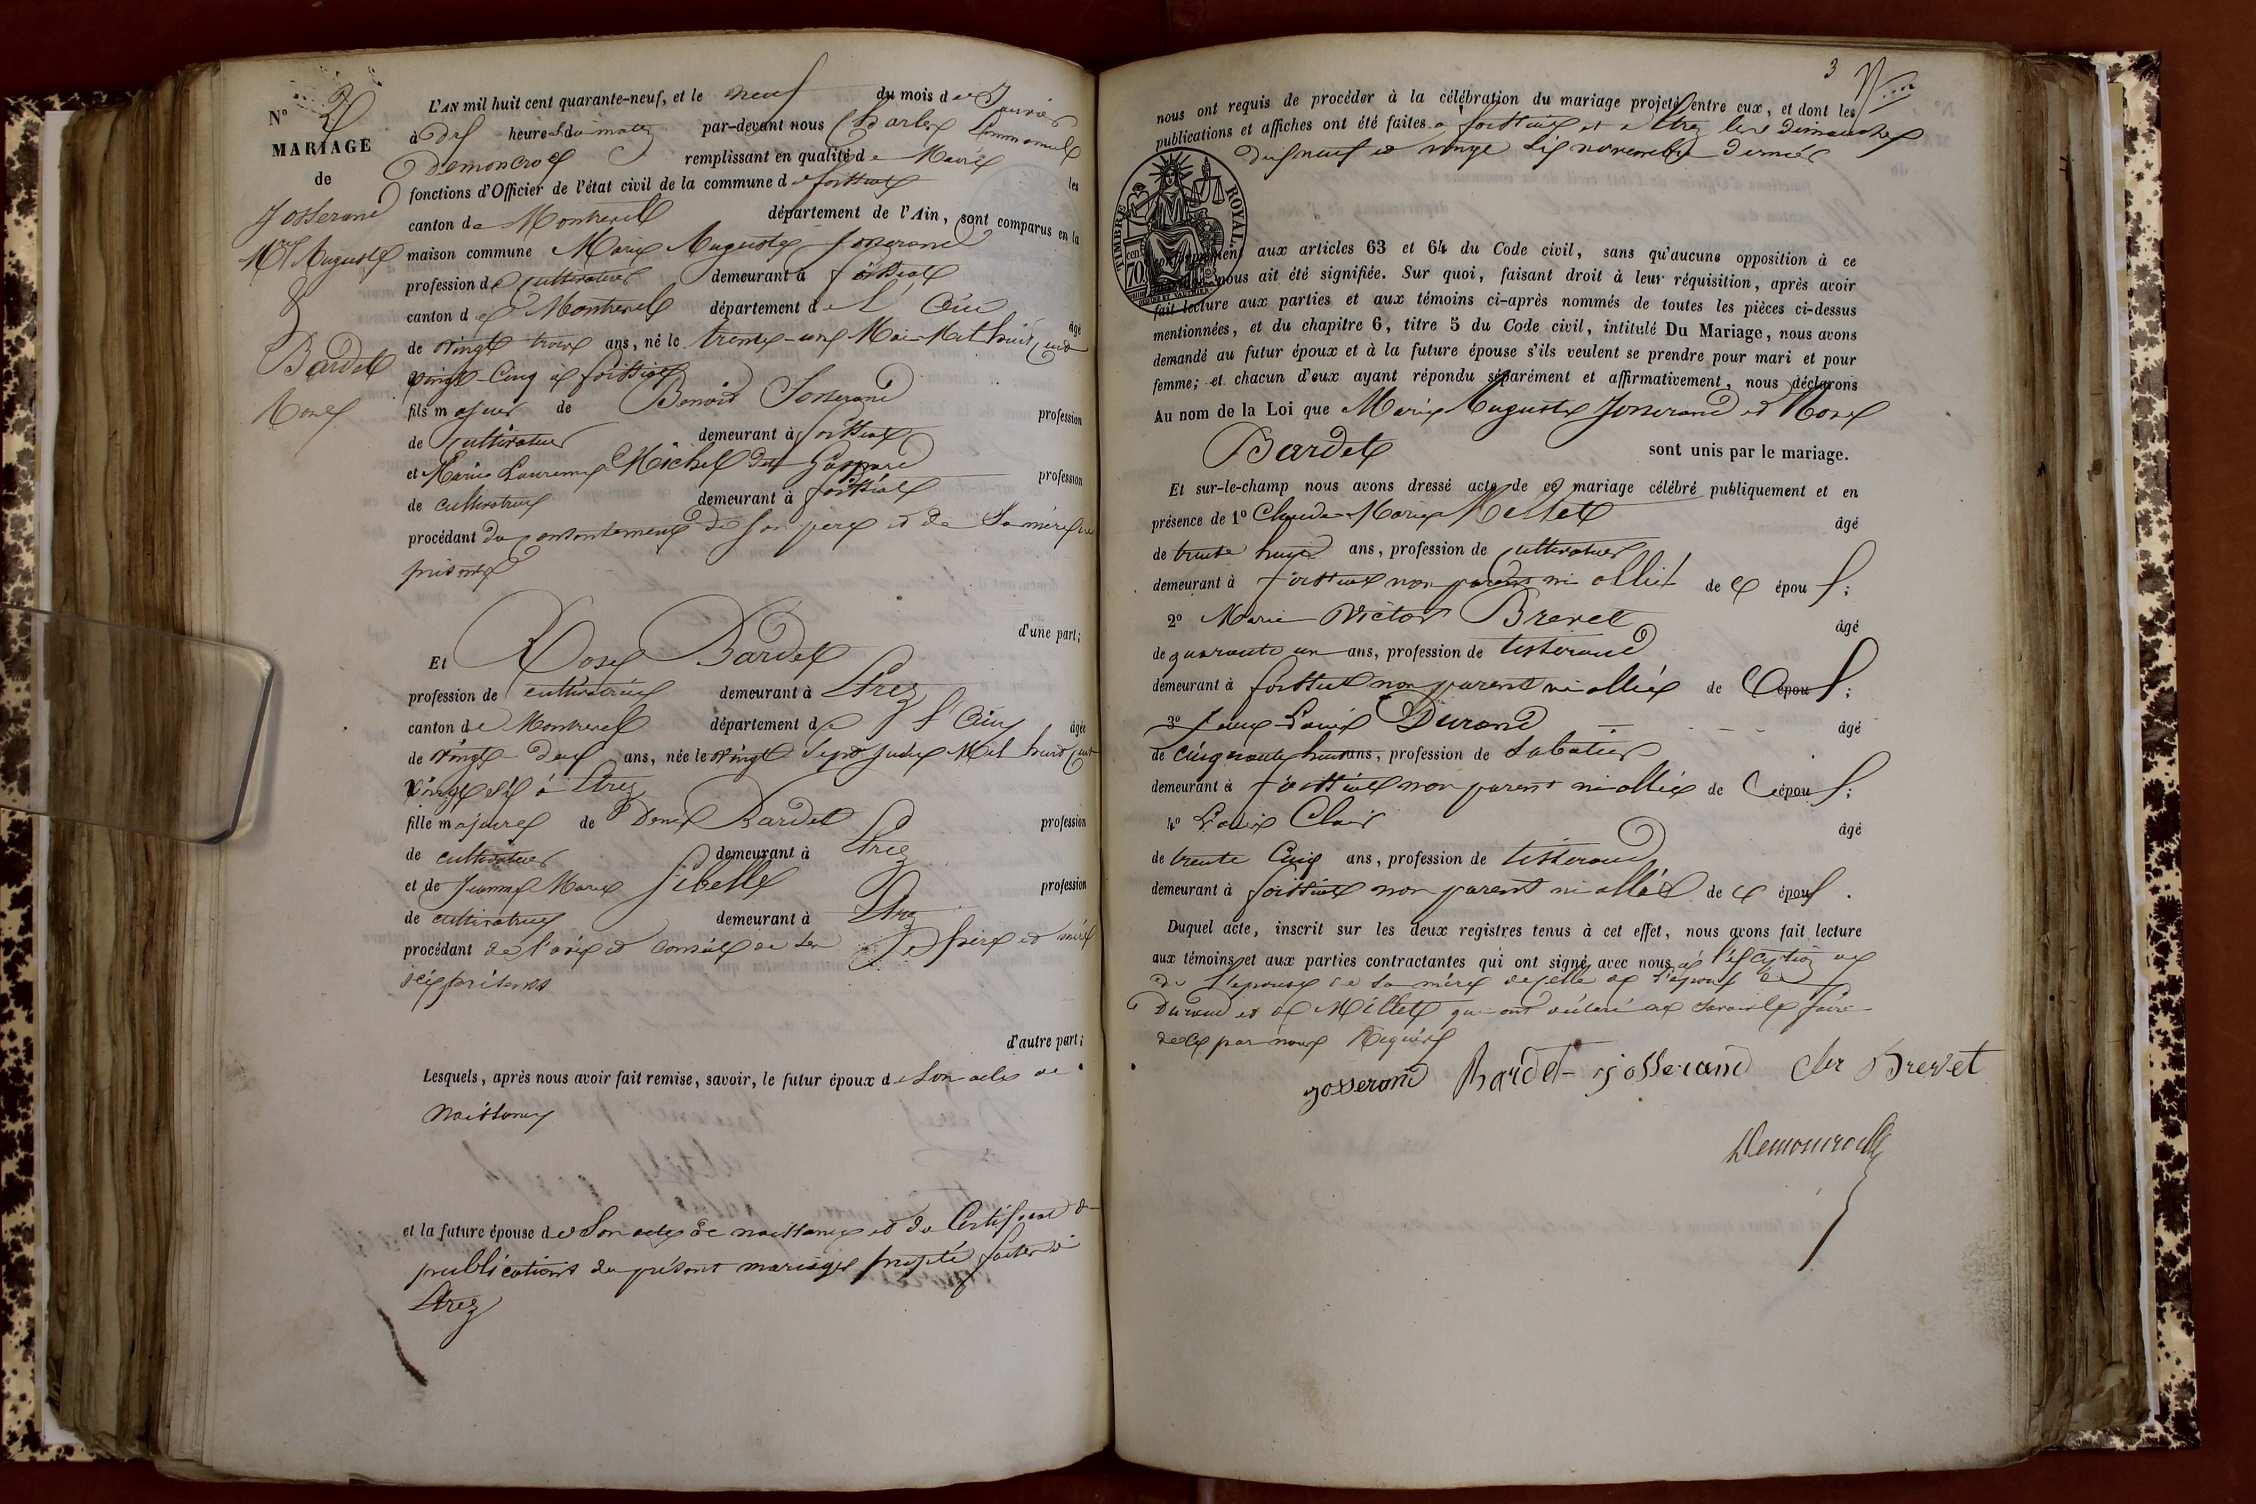 N° 2
MARIAGE
de
Josserand
Mie Auguste
&
Bardet
Rose
L'AN mil huit cent quarante-neuf, et le neuf du mois de Janvier
à dix heures du matin par-devant nous Charles Emmanuel
Demoncroz remplissant en qualité de Maire les
fonctions d'Officier de l'état civil de la commune de foissiat
canton de Montrevel département de l'Ain, sont comparus en la
maison commune Marie Auguste Josserand
profession de cultivateur demeurant à foissiat
canton de Montrevel département de L'Ain âgé
de vingt trois ans, né le trente-un Mai Mil huit cent
vingt-Cinq à foissiat
fils majeur de Benoit Josserand profession
de cultivateur demeurant à foissiat
et Marie Laurence Michel dit Gaspard profession
de cultivatrice demeurant à foissiat
procédant du consentement de son père et de sa mère ici
présents
d'une part;
Et Rose Bardet
profession de cultivatrice demeurant à Etrez
canton de Montrevel département de l'Ain âgée
de vingt-deux ans, née le vingt sept Mil huit cent
vingt six à Etrez
fille majeure de Denis Bardet profession
de cultivateur demeurant à Etrez
et de Jeanne Marie Sibelle profession
de cultivatrice demeurant à Etrez
procédant de l'avis et conseil de ses père et mère
ici présents
d'autre part;
Lesquels, après nous avoir fait remise, savoir, le futur époux de son acte de
naissance
et la future épouse de son acte de naissance et du Certificat de
publications du présent mariage projeté faites à
Etrez
3
nous ont requis de procéder à la célébration du mariage projeté entre eux, et dont les
publications et affiches ont été faites à foissiat et à Etrez les dimanches
dix neuf et vingt six novembre dernier
TIMBRE ROYAL
70
conformément aux articles 63 et 64 du Code civil, sans qu'aucune opposition à ce
nous ait été signifiée. Sur quoi, faisant droit à leur réquisition, après avoir
fait lecture aux parties et aux témoins ci-après nommés de toutes les pièces ci-dessus
mentionnées, et du chapitre 6, titre 5 du Code civil, intitulé Du Mariage, nous avons
demandé au futur époux et à la future épouse s'ils veulent se prendre pour mari et pour
femme; et chacun d'eux ayant répondu séparément et affirmativement, nous déclarons
Au nom de la Loi que Marie Auguste Josserand et Rose
Bardet sont unis par le mariage.
Et sur-le-champ nous avons dressé acte de ce mariage célébré publiquement et en
présence de 1° Claude Marie Millet âgé
de trente huit ans, profession de cultivateur
demeurant à foissiat non parent ni allié de ces époux;
2° Marie Victor Brevet âgé
de quarante un ans, profession de tisserand
demeurant à foissiat non parent ni allié de ces époux;
3° Louis Durand âgé
de cinquante huit ans, profession de sabotier
demeurant à foissiat non parent ni allié de ces époux;
4° Louis Clair âgé
de trente Cinq ans, profession de tisserand
demeurant à foissiat non parent ni allié de ces époux.
Duquel acte, inscrit sur les deux registres tenus à cet effet, nous avons fait lecture
aux témoins et aux parties contractantes qui ont signé avec nous à l'exception de
de l'épouse de sa mère de celle de l'époux de
Durand et de Millet qui ont déclaré ne savoir le faire
de ce par nous Requis
josserand Bardet josserand cler Brevet
Demoncroz